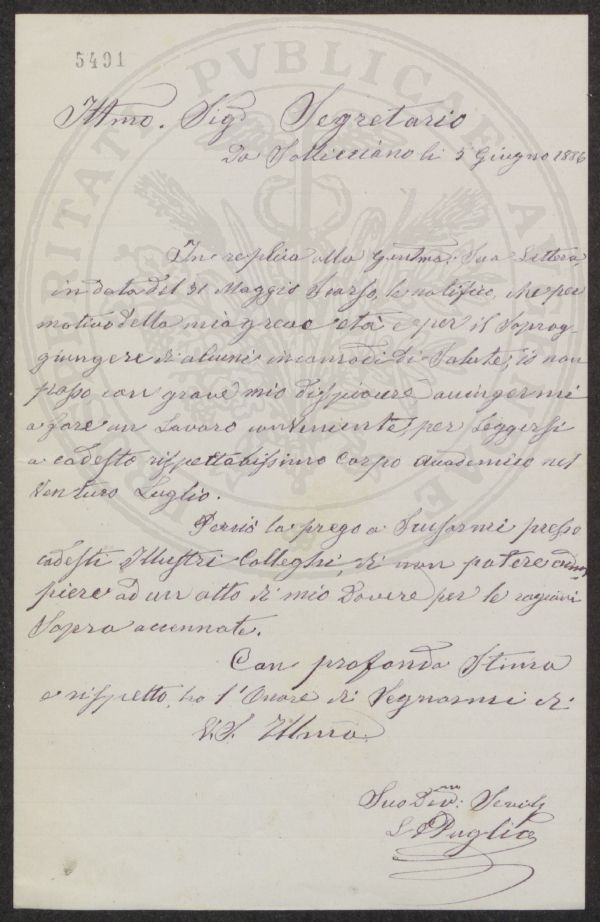 5491
PROSPERITATI PVBLICAE AVGENDAE
Illmo. Sigr Segretario
Da Sollicciano li 5 Giugno 1886
In replica alla Gentma: Sua Lettera,
in data del 31 Maggio Scorso, le notifico, che per
motivo della mia grave età e per il Soprag-
giungere di alcuni incomodi di Salute, io non
posso con grave mio dispiacere, accingermi
a fare un Lavoro conveniente, per Leggersi
a codesto rispettabissimo Corpo Accademico nel
Venturo Luglio.
Perciò la prego a Scusarmi presso
codesti Illustri Colleghi, di non potere adem
piere ad un atto di mio Dovere per le ragioni
Sopra accennate.
Con profonda Stima
e rispetto, ho l'Onore di Segnarmi di
V.S. Illma
Suo Devmo: Servo
L Puglia